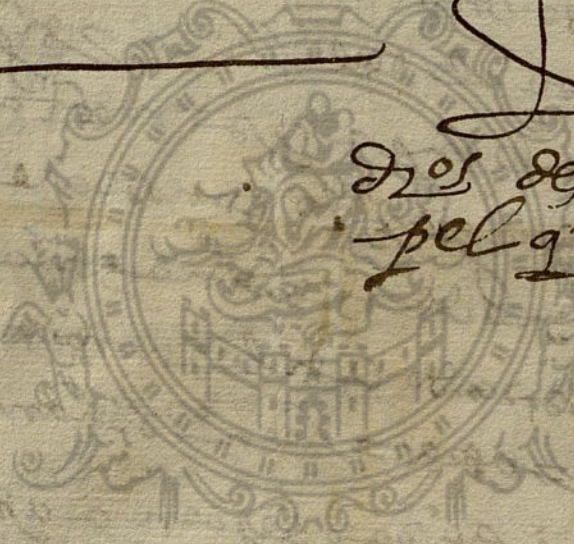 dros de
pel q